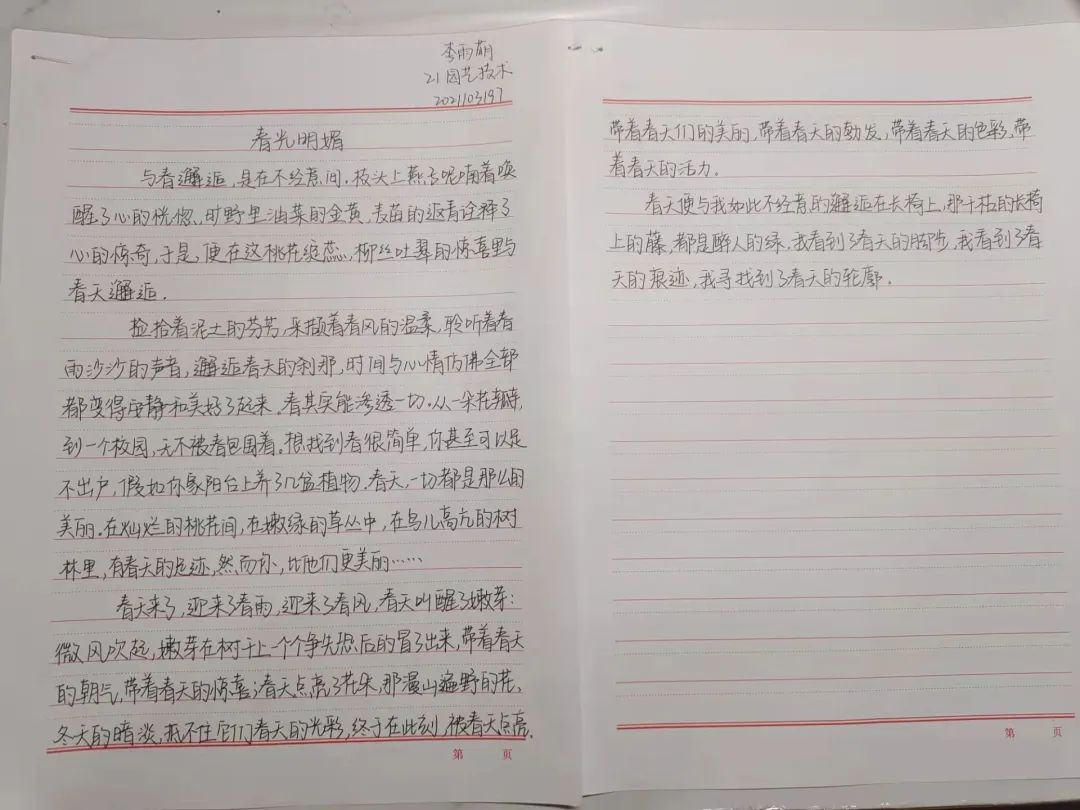 李雨萌
21园艺技术
2021103197
春光明媚
与春邂逅,是在不经意间.枝头上燕子呢喃着唤
醒了心的恍惚.旷野里油菜的金黄.麦苗的返青诠释了
心的惊奇,于是,便在这桃花绽蕊,柳丝吐翠的惊喜里与
春天邂逅.
捡拾着泥土的芬芳,采撷着春风的温柔,聆听着春
雨沙沙的声音,邂逅春天的刹那,时间与心情仿佛全部
都变得安静和美好了起来.春其实能渗透一切.从一朵花瓣,
到一个校园,无不被春包围着。想找到春很简单,你甚至可以足
不出户,假如你家阳台上养了几盆植物.春天,一切都是那么的
美丽.在灿烂的桃花间,在嫩绿的草丛中,在鸟儿高亢的树
林里,有春天的足迹,然而你,比他们更美丽……
春天来了,迎来了春雨,迎来了春风,春天叫醒了嫩芽:
微风吹起,嫩芽在树干上一个个争先恐后的冒了出来,带着春天
的朝气,带着春天的惊喜;春天点亮了花朵,那漫山遍野的花,
冬天的暗淡,抵不住它们春天的光彩,终于在此刻,被春天点亮.
第 页
带着春天们的美丽,带着春天的勃发,带着春天的色彩,带
着春天的活力.
春天便与我如此不经意的邂逅在长椅上,那干枯的长椅
上的藤,都是醉人的绿.我看到了春天的脚步,我看到了春
天的痕迹,我寻找到了春天的轮廓.
第 页